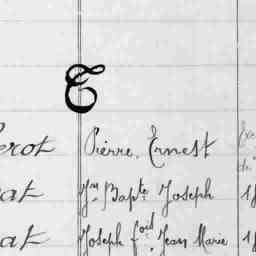 E
erot Pierre, Ernest
at Jn Bapte Joseph
at Joseph foid Jean Marie